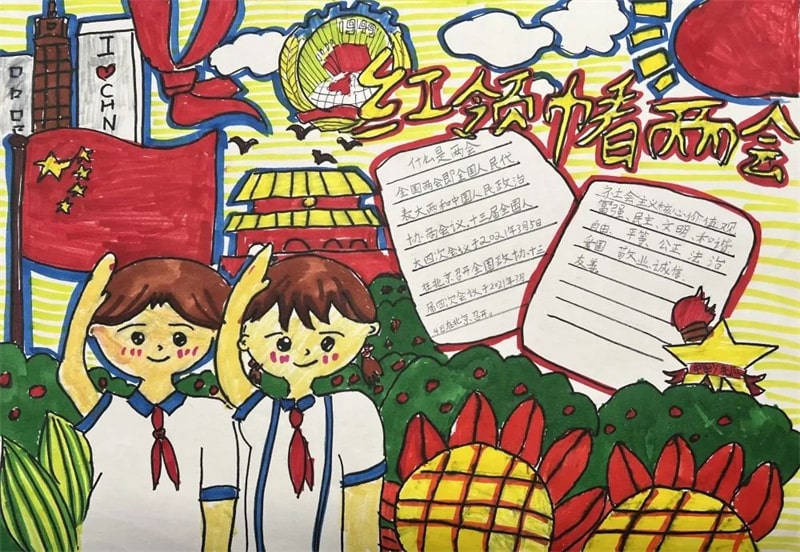 1949
I
CHN
红领巾看两会
什么是两会
全国两会即全国人民代
表大两和中国人民政治
协商会议,十三届全国人
大四次会议于2021年3月5日
在北京召开全国政协十三
届四次会议于2021年3月
4日在北京召开。
社会主义核心价值观
富强、民主、文明、和谐
自由、平等、公正 法治
爱国 敬业 诚信
友善